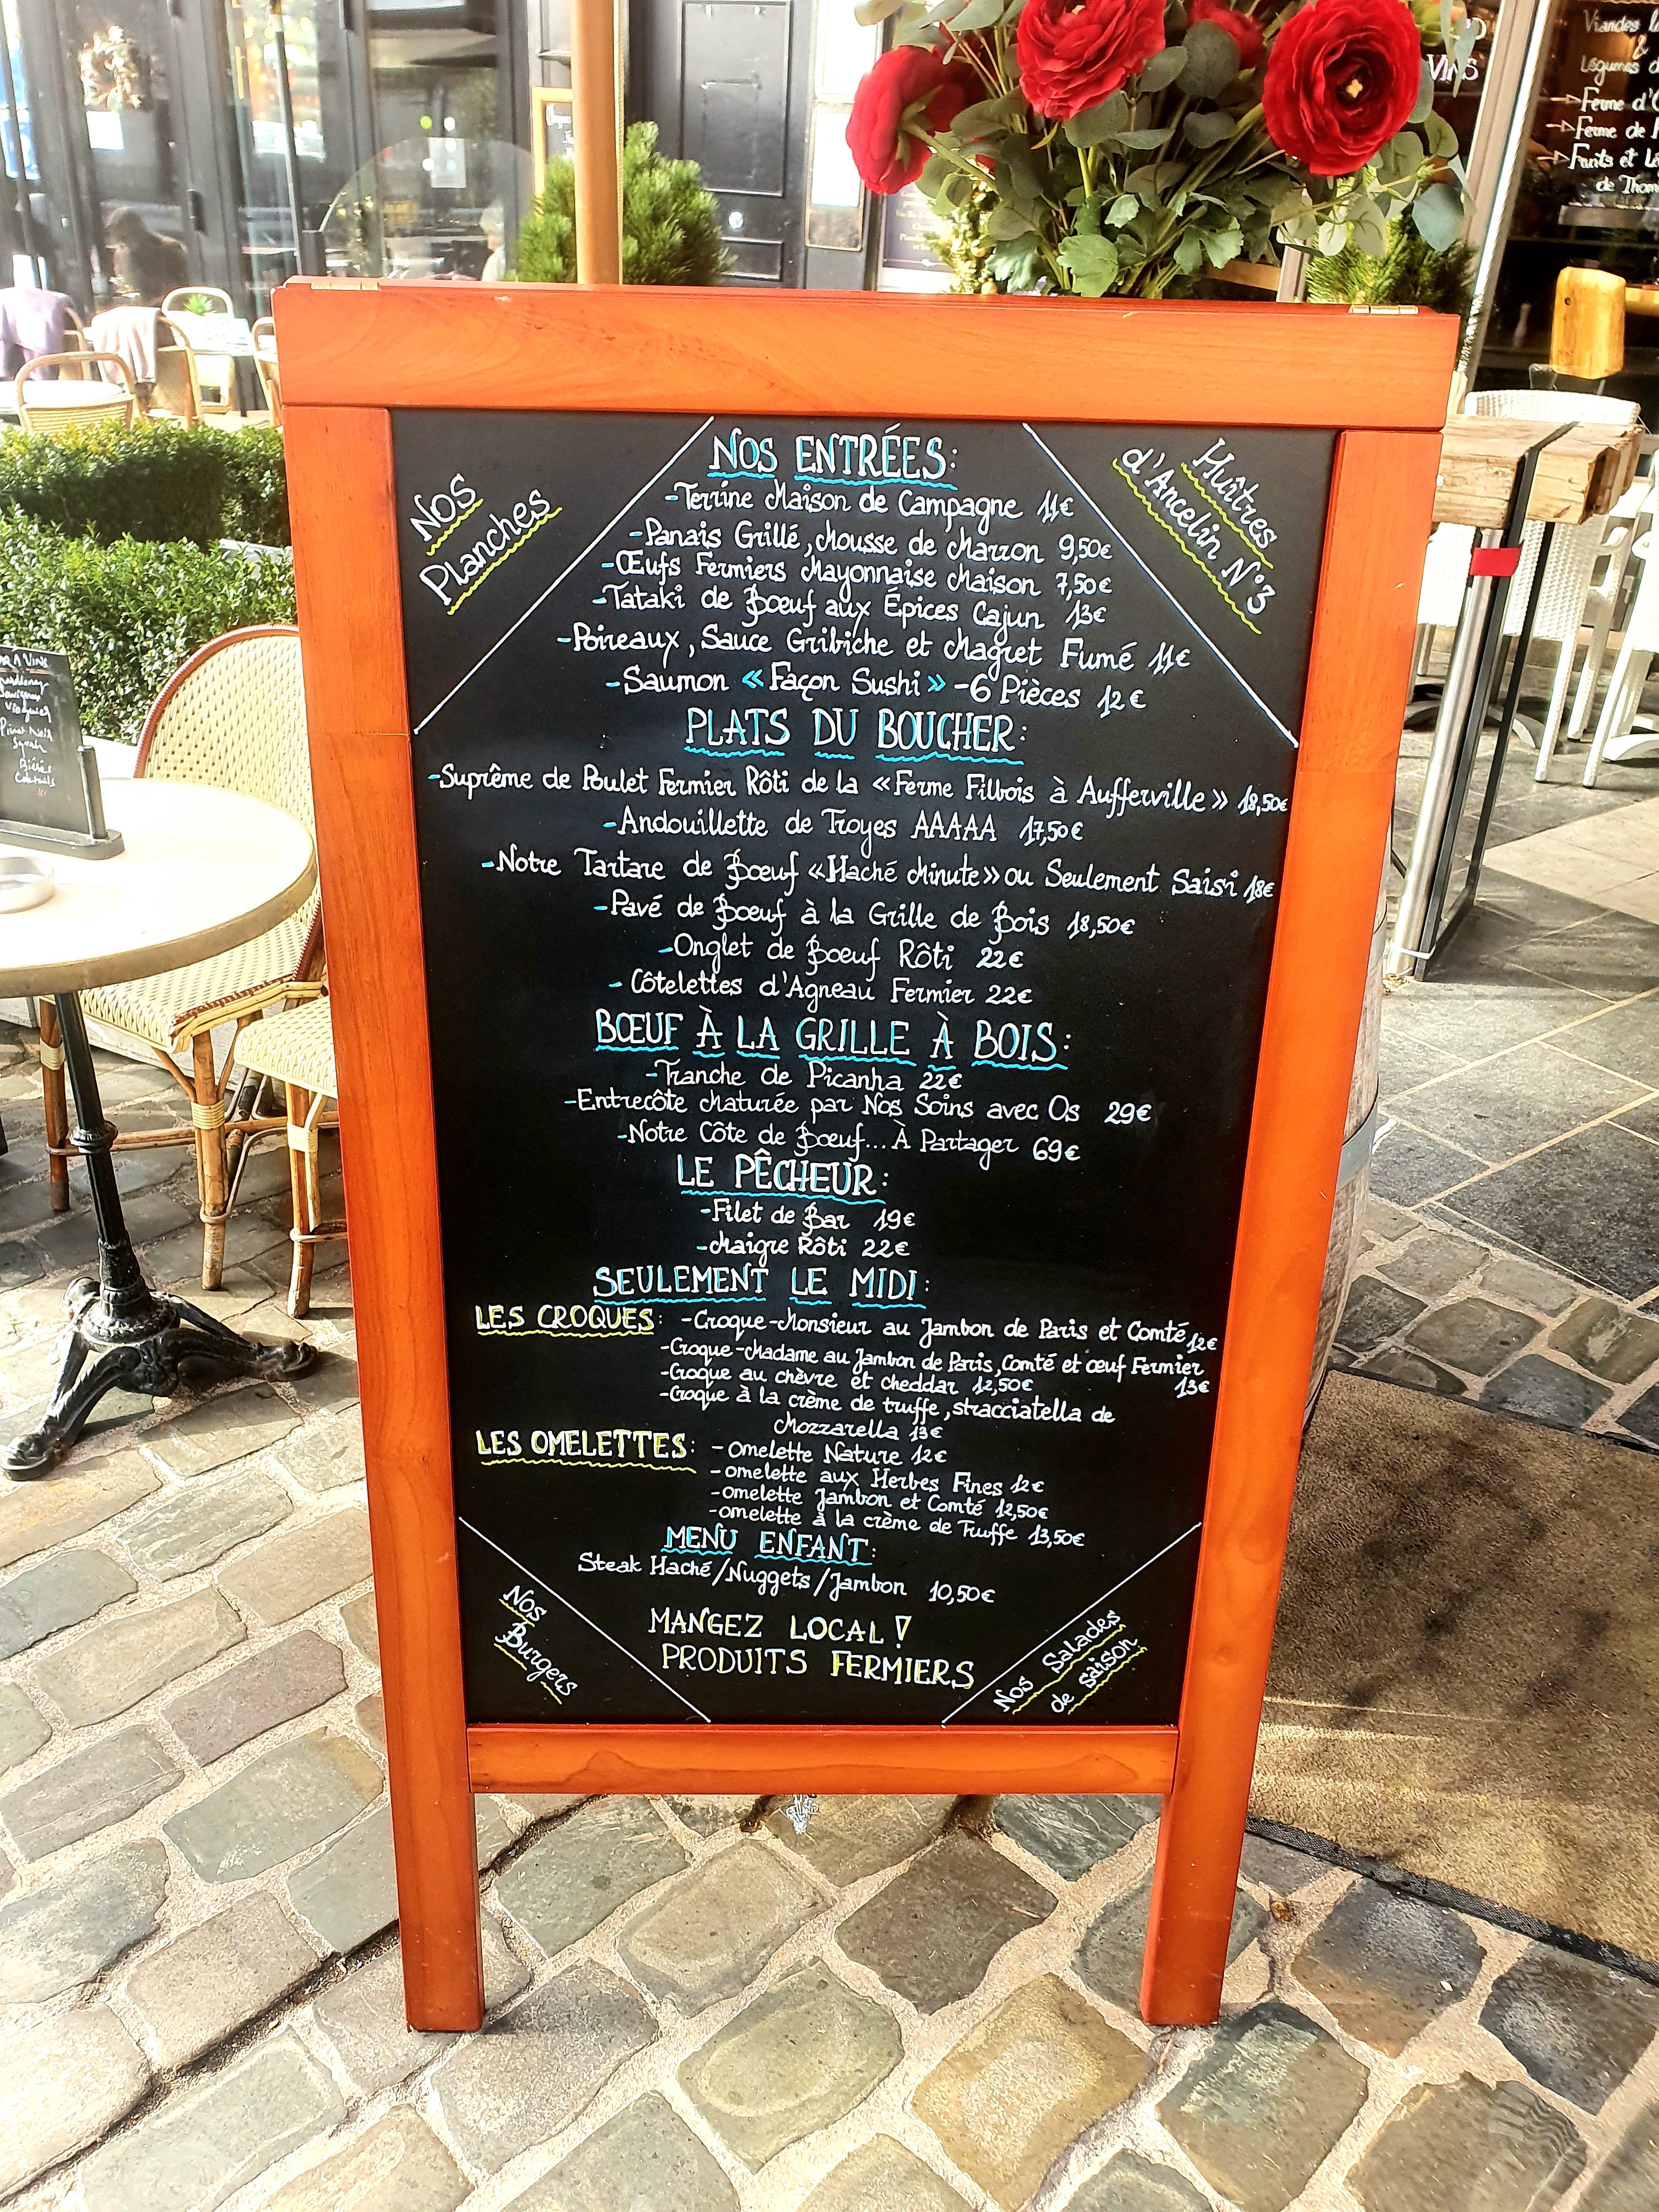 VINS
Viandes
&
Légumes
Ferme
Ferme de
Fruits et
de Thom
Nos
Planches
Huîtres
d'Ancelin N°3
NOS ENTRÉES:
-Terrine Maison de Campagne 11€
-Panais Grillé, Mousse de Marron 9,50€
-Œufs Fermiers Mayonnaise Maison 7,50€
-Tataki de Boeuf aux Épices Cajun 13€
-Poireaux, Sauce Gribiche et Magret Fumé 11€
-Saumon «Façon Sushi» -6 Pièces 12€
PLATS DU BOUCHER:
-Suprême de Poulet Fermier Rôti de la «Ferme Filbois à Aufferville» 18,50€
-Andouillette de Troyes AAAAA 17,50€
-Notre Tartare de Boeuf «Haché Minute» ou Seulement Saisi 18€
-Pavé de Boeuf à la Grille de Bois 18,50€
-Onglet de Boeuf Rôti 22€
-Côtelettes d'Agneau Fermier 22€
BŒUF À LA GRILLE À BOIS:
-Tranche de Picanha 22€
-Entrecôte Maturée par Nos Soins avec Os 29€
-Notre Côte de Boeuf... À Partager 69€
LE PÊCHEUR:
-Filet de Bar 19€
-Maigre Rôti 22€
SEULEMENT LE MIDI:
LES CROQUES: -Croque-Monsieur au Jambon de Paris et Comté 12€
-Croque-Madame au Jambon de Paris, Comté et œuf Fermier
13€
-Croque au chèvre et cheddar 12,50€
-Croque à la crème de truffe, stracciatella de
Mozzarella 13€
LES OMELETTES: -Omelette Nature 12€
-omelette aux Herbes Fines 12€
-omelette Jambon et Comté 12,50€
-omelette à la crème de Truffe 13,50€
MENU ENFANT:
Steak Haché/Nuggets/Jambon 10,50€
MANGEZ LOCAL!
PRODUITS FERMIERS
Nos
Burgers
Nos Salades
de saison
VINS
Viognier
Pinot Noir
Syrah
Bières
Cocktails